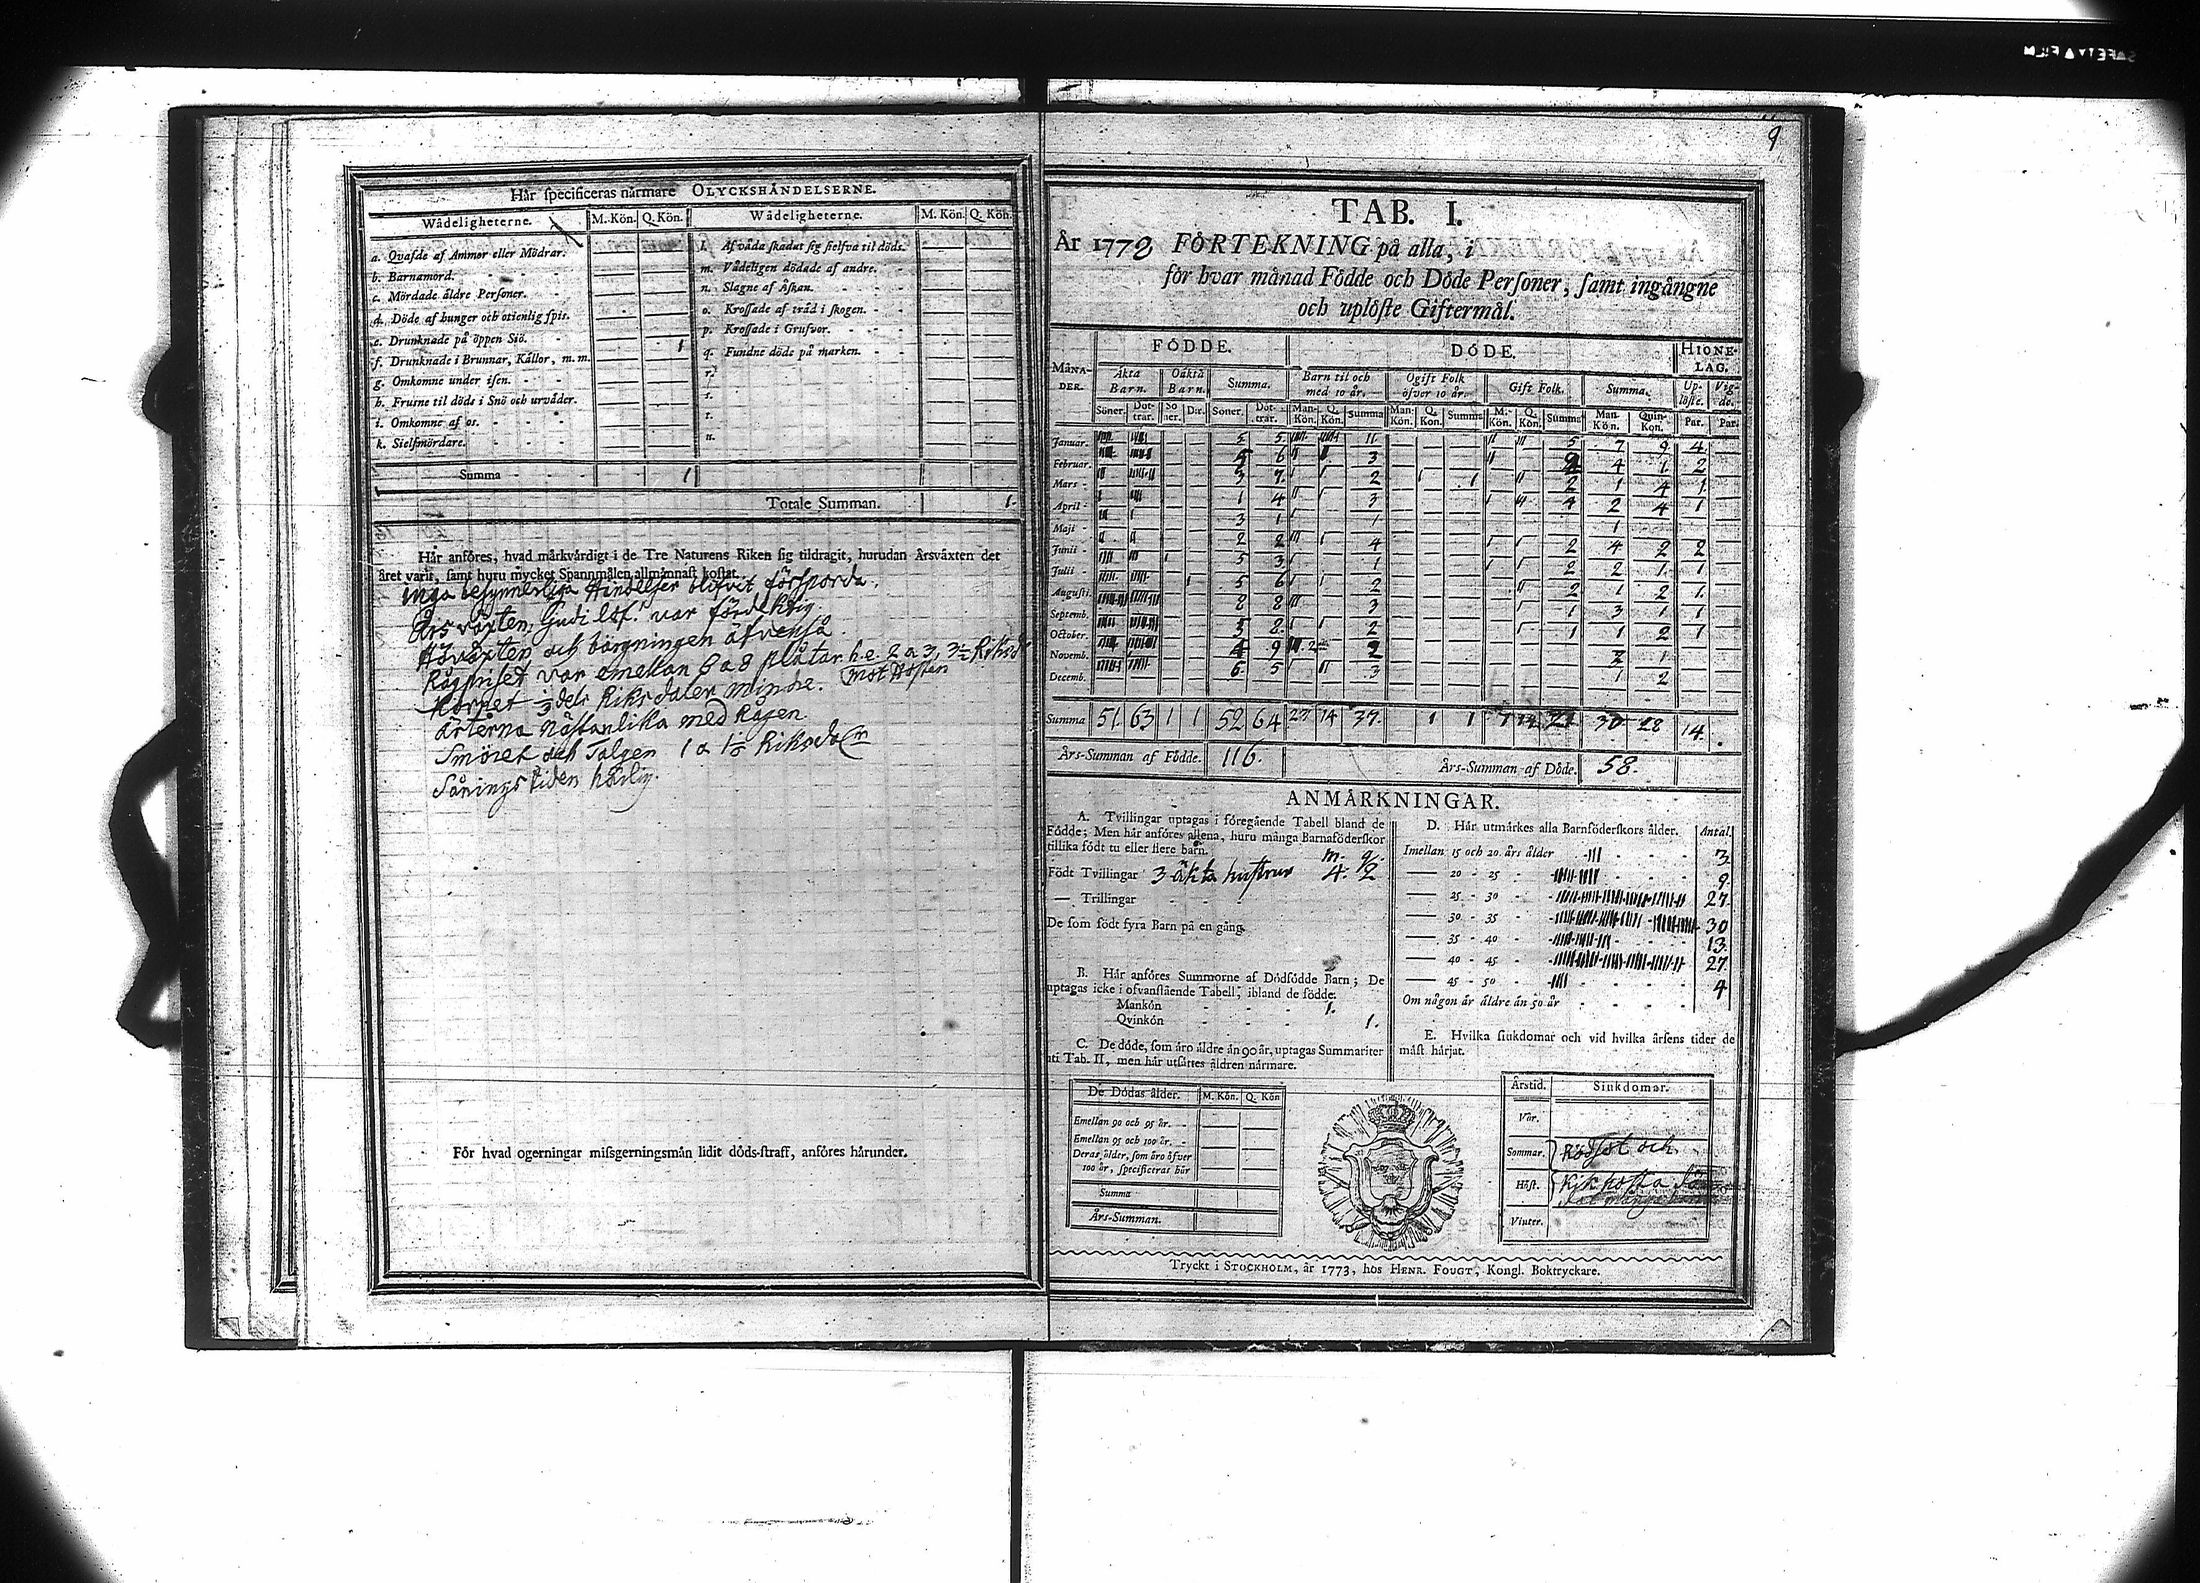 9
Hår specificeras nårmare OLYCKSHÅNDELSERNE.
Wådeligheterne. M. Kön. Q. Kön. Wådeligheterne. M. Kön. Q. Kön.
a. Qvafde af Ammor eller Mödrar.
b. Barnamord.
c. Mördade åldre Personer.
d. Döde af hunger och otienlig spis.
e. Drunknade på öppen Siö.
f. Drunknade i Brunnar, Kållor, m. m. 1
g. Omkomne under isen.
h. Frusne til döds i Snö och urvåder.
i. Omkomne af os.
k. Sielfmördare.
l. Af våda skadat sig sielfva til döds.
m. Vådeligen dödade af andre.
n. Slagne af Åskan.
o. Krossade af tråd i skogen.
p. Krossade i Grufvor.
q. Fundne döde på marken.
r.
s.
t.
u.
Summa 1
Totale Summan. 1.
Hår anföres, hvad mårkvårdigt i de Tre Naturens Riken sig tildragit, hurudan Årsvåxten det
året varit, samt huru mycket Spannmålen allmånnast kostat.
Inga besynnerliga Händelser blifvit försporda.
Årsväxten, Gudi lof! var fördelktig.
Höväxten och bärgningen äfvenså.
Rågpriset var emellan 6 a 8 plåtar h.e. 2 a 3, 3½ Riksd
Kornet ⅓ dels Riksdaler mindre. mot Hösten
Ärterna nästanlika med Rågen.
Smöret och Talgen 1 a 1⅓ Riksdalr
Såningstiden härlig.
För hvad ogerningar missgerningsmån lidit döds-straff, anföres hårunder.
TAB. I.
År 1778 FÖRTEKNING på alla, i
för hvar månad Födde och Döde Personer, samt ingångne
och uplöste Giftermål.
MÅNADER. FÖDDE. DÖDE. HIONELAG.
Åkta Barn. Oåkta Barn. Summa. Barn til och med 10 år. Ogift Folk öfver 10 år. Gift Folk. Summa. Uplöste. Vigde.
Söner. Dottrar. Söner. Dir. Söner. Dottrar. Man-Kön. Q. Kön. Summa Man-Kön. Q. Kön. Summa M. Kön. Q. Kön. Summa Man-Kön. Quin-Kon. Par. Par.
Januar. 5 5 11 5 7 9 4
Februar. 6 3 4 1 2
Mars 3 7 2 1 2 1 4 1
April 1 4 3 4 2 4 1
Maji 3 1 1 1
Junii 2 2 4 2 4 2 2
Julii 5 3 1 2 2 1 1
Augusti. 5 6 2 2 1 2 1
Septemb. 8 8 3 1 3 1 1
October. 5 8 2 1 1 2 1
Novemb. 4 9 2 1
Decemb. 6 5 3 1 2
Summa 51. 63 1 1 52 64 23 14 37. 1 1 7 30 28 14.
Års-Summan af Födde. 116. Års-Summan af Döde. 58.
ANMÅRKNINGAR.
A. Tvillingar uptagas i föregående Tabell bland de
Födde; Men hår anföres allena, huru många Barnaföderskor
tillika födt tu eller flere barn.
m. q.
Födt Tvillingar 3 äkta hustrur 4. 2
— Trillingar
De som födt fyra Barn på en gång.
B. Hår anföres Summorne af Dödfödde Barn; De
uptagas icke i ofvanstående Tabell, ibland de födde.
Mankön 1.
Qvinkön 1.
C. De döde, som åro åldre ån 90 år, uptagas Summariter
uti Tab. II, men hår utsåttes åldren nårmare.
De Dödas ålder. M. Kön. Q. Kön
Emellan 90 och 95 år.
Emellan 95 och 100 år.
Deras ålder, som åro öfver
100 år, specificeras hår
Summa
Års-Summan.
D. Hår utmårkes alla Barnföderskors ålder. Antal.
Imellan 15 och 20. års ålder 3
— 20 - 25 9
— 25 - 30 27
— 30 - 35 30
— 35 - 40 13.
— 40 - 45 27.
— 45 - 50 4
Om någon år åldre ån 50 år
E. Hvilka siukdomar och vid hvilka årsens tider de
måst hårjat.
Årstid. Siukdomar.
Vår.
Sommar. Rödsot och
Höst. Kikhosta
Vinter.
Tryckt i STOCKHOLM, år 1773, hos HENR. FOUGT, Kongl. Boktryckare.